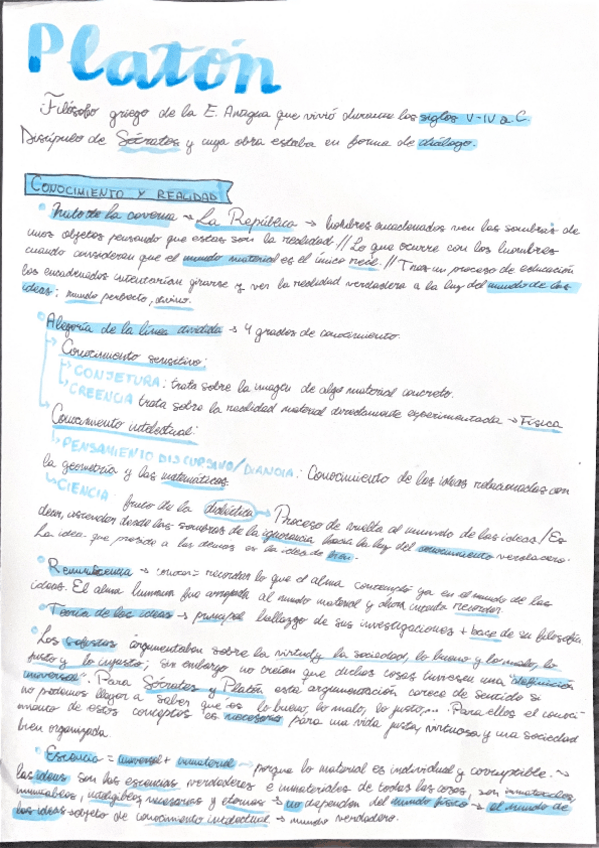 Platón
Filósofo griego de la E. Antigua que vivió durante los siglos V-IV a C.
Discípulo de Sócrates y cuya obra estaba en forma de diálogo.
CONOCIMIENTO Y REALIDAD
Mito de la caverna → La República → hombres encadenados ven las sombras de
unos objetos pensando que estas son la realidad // Lo que ocurre con los hombres
cuando consideran que el mundo material es el único real. // Tras un proceso de educación
los encadenados intentarían girarse y ver la realidad verdadera a la luz del mundo de las
ideas: mundo perfecto, divino.
Alegoría de la línea dividida → 4 grados de conocimiento.
Conocimiento sensitivo:
CONJETURA: trata sobre la imagen de algo material concreto.
CREENCIA trata sobre la realidad material directamente experimentada → Física
Conocimiento intelectual:
PENSAMIENTO DISCURSIVO/DIANOIA: Conocimiento de las ideas relacionadas con
la geometría y las matemáticas.
CIENCIA: fruto de la dialéctica → Proceso de vuelta al mundo de las ideas / Es
decir, ascender desde las sombras de la ignorancia hacia la luz del conocimiento verdadero.
La idea que preside a las demás es la idea de Bien.
Reminiscencia → = recordar lo que el alma contempló ya en el mundo de las
ideas. El alma humana fue arrojada al mundo material y ahora intenta recordar
Teoría de las ideas → principal hallazgo de sus investigaciones + base de su filosofía
Los sofistas argumentaban sobre la virtud y la sociedad, lo bueno y lo malo, lo
justo y lo injusto; sin embargo no creían que dichas cosas tuviesen una "definición
universal". Para Sócrates y Platón esta argumentación carece de sentido si
no podemos llegar a saber que es lo bueno, lo malo, lo justo,... Para ellos el conoci-
miento de estos conceptos es necesario para una vida justa, virtuosa y una sociedad
bien organizada.
Esencia = universal + inmaterial → porque lo material es individual y corruptible. →
las ideas son las esencias verdaderas e inmateriales de todas las cosas, son inmateriales,
inmutables, inteligibles necesarias y eternas → no dependen del mundo físico → el mundo de
las ideas objeto de conocimiento intelectual → mundo verdadero.